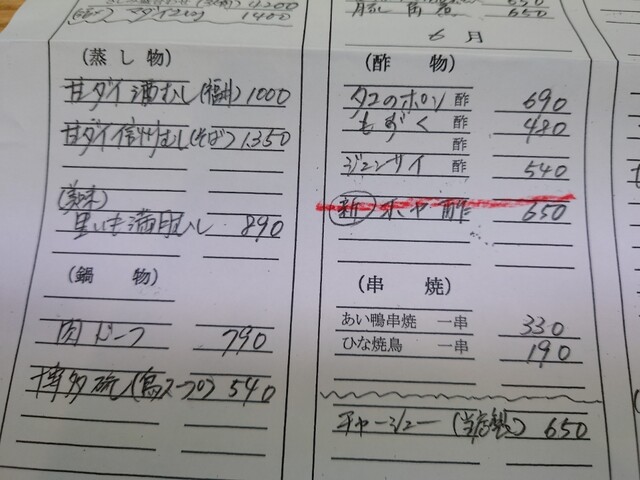 1400
(蒸し物)
甘ダイ酒むし(福井) 1000
甘ダイ信州むし(そば) 1,350
(美味)
里いも満月むし 890
(鍋物)
肉ドーフ 790
博多 (鳥スープ) 540
650
6月
(酢物)
タコのポン酢 690
もずく酢 480
酢
ジュンサイ酢 540
新 ホヤ酢 650
(串焼)
あい鴨串焼 一串 330
ひな焼鳥 一串 190
チャーシュー(当店製) 650